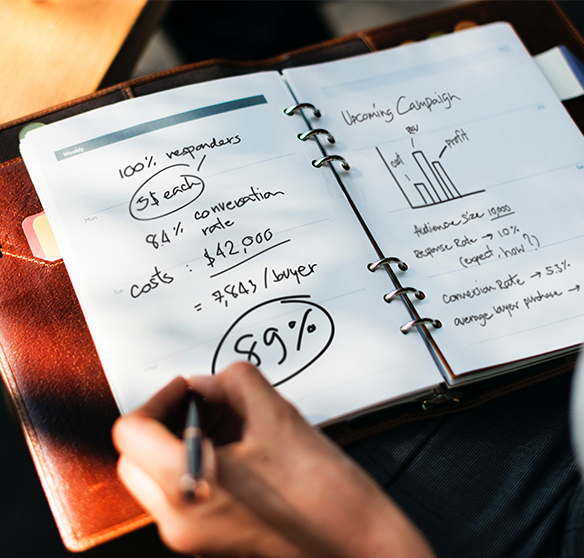 Weekly
100% responders
5$ each
84% conversation
rate
costs : $42,000
= 7,843/buyer
89%
Mon
Tue
Upcoming Campaign
cost
Rev
Profit
Audience Size 10,000
Response Rate → 10%
(expect, how?)
Conversion Rate → 53%
average buyer purchase →